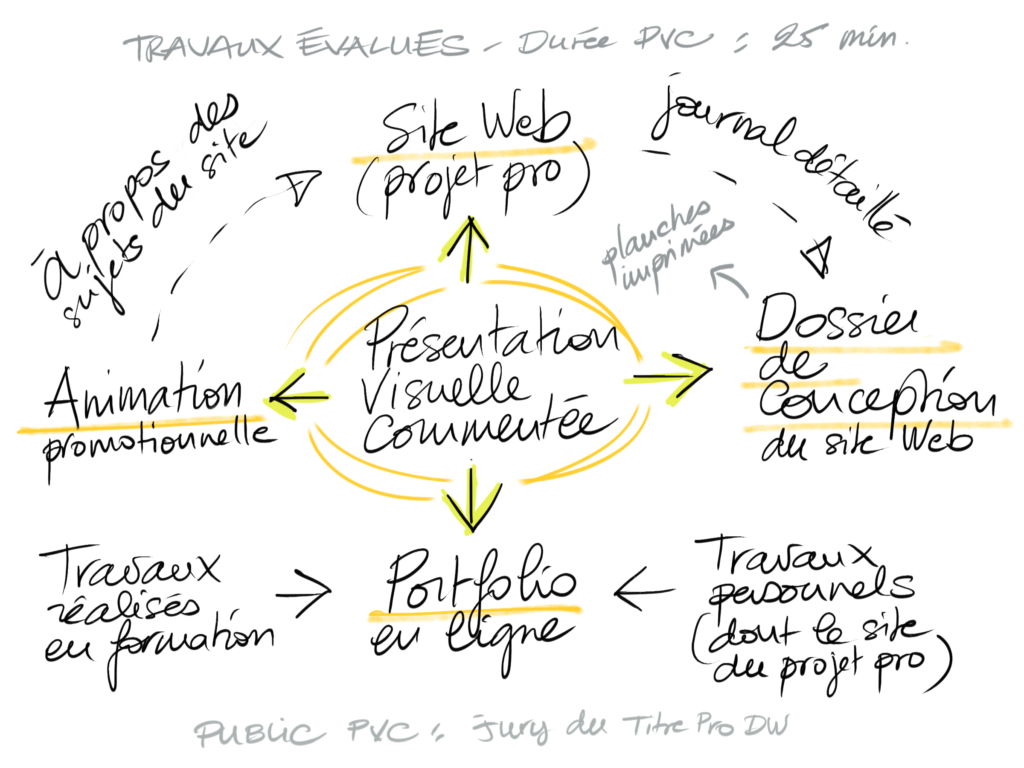 TRAVAUX ÉVALUÉS - Durée PVC : 25 min.
à propos des
sujets du site
Site Web
(projet pro)
journal détaillé
planches
imprimées
Présentation
Visuelle
Commentée
Animation
promotionnelle
Dossier
de
Conception
du site Web
Travaux
réalisés
en formation
Portfolio
en ligne
Travaux
personnels
(dont le site
du projet pro)
PUBLIC PVC : jury du Titre Pro DW